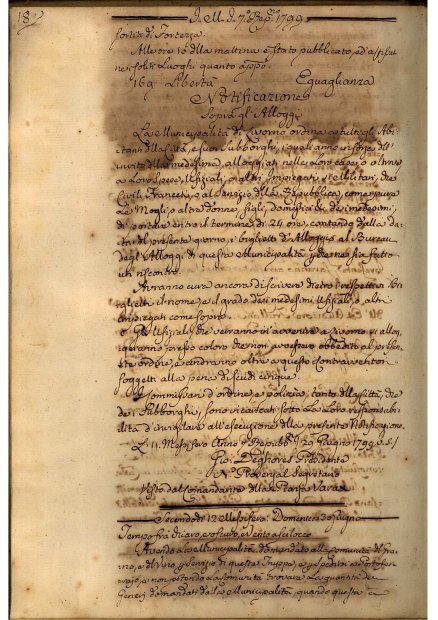 182
J.M.J. 7: Rep: 1799
sortite di Fortezza.
Alle ore 10 della mattina è stato pubblicato, ed affisso
nei soliti Luoghi quanto appo:
169 Libertà Eguaglianza
Notificazione
Sopra gl'Alloggi
La Municipalità di Livorno ordina a tutti gli Abi-
tanti della Città, e suoi Subborghi, i quali anno in forza dell'
invito della medesima, alloggiati nelle loro case, o altrove
a Loro Spese, Uffiziali, o altri Impiegati, e Militari, che
Civili Francesi, o al Servizio della Repubblica, come pure
Le Mogli, o altre donne, figli, domestici &c dei medesimi,
di portare entro il termine di 24 ore, contando dalla da-
ta del presente giorno, i biglietti d'Alloggio al Bureau
degl'Alloggi di questa Municipalità, che ne sia fatto
un riscontro.
Avranno cura ancora di scivere dietro i rispettivi bi-
glietti il nome, e il grado dei medesimi Uffiziali, o altri
impiegati come sopra.
Gli Uffiziali, che verranno in avvenire a Livorno si allog-
geranno presso coloro che non avessero obbedito al presen-
te ordine, e andranno oltre a questo i contravventori
soggetti alla pena di scudi cinque.
I Commissari d'ordine, e polizia, tanto della Città, che
dei Subborghi, sono incaricati sotto La Loro responsabi-
lità d'invigilare all'esecuzione della presente Notificazione.
Li 11. Messifero Anno 7 Repubb: 29 Giugno 1799 v.s.
Gio: Deghores Presidente
N: Provenzal Segretario
Visto dal Comandante della Piazza Varas
Secondo dì 12 Messifero: Domenica 30 Giugno
Tempo fra chiaro, e vento a scirocco
Avendo la Municipalità domandato alla Comunità
e non potendo la Comunità trovare La quantità dei
Generi domandati dalla Municipalità, quando questa